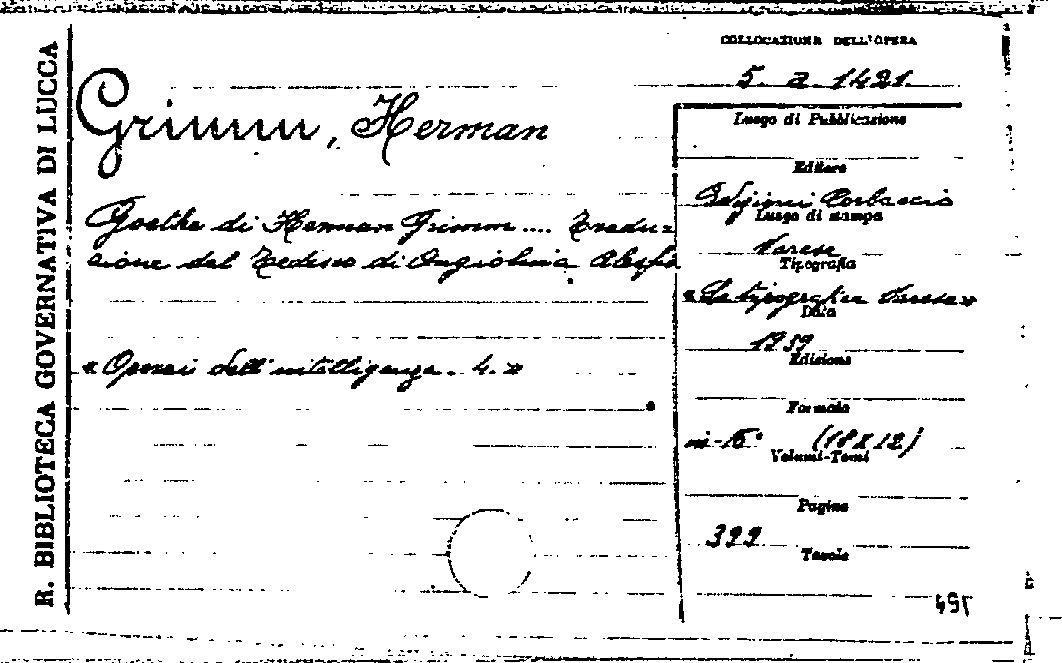 R. BIBLIOTECA GOVERNATIVA DI LUCCA
COLLOCAZIONE DELL'OPERA
5. a. 1421.
Grimm, Herman
Goethe di Herman Grimm .... Tradu=
zione dal Tedesco di Angiolina
« Operai dell'intelligenza. 4. »
Luogo di Pubblicazione
Editore
Edizioni Corbaccio
Luogo di stampa
Varese
Tipografia
« La tipografica Varese »
Data
1939
Edizione
Formato
in-16° (18 X 12)
Volumi-Tomi
Pagine
399
Tavole